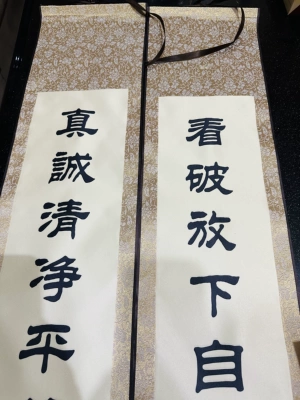 看破放下自
真誠清净平